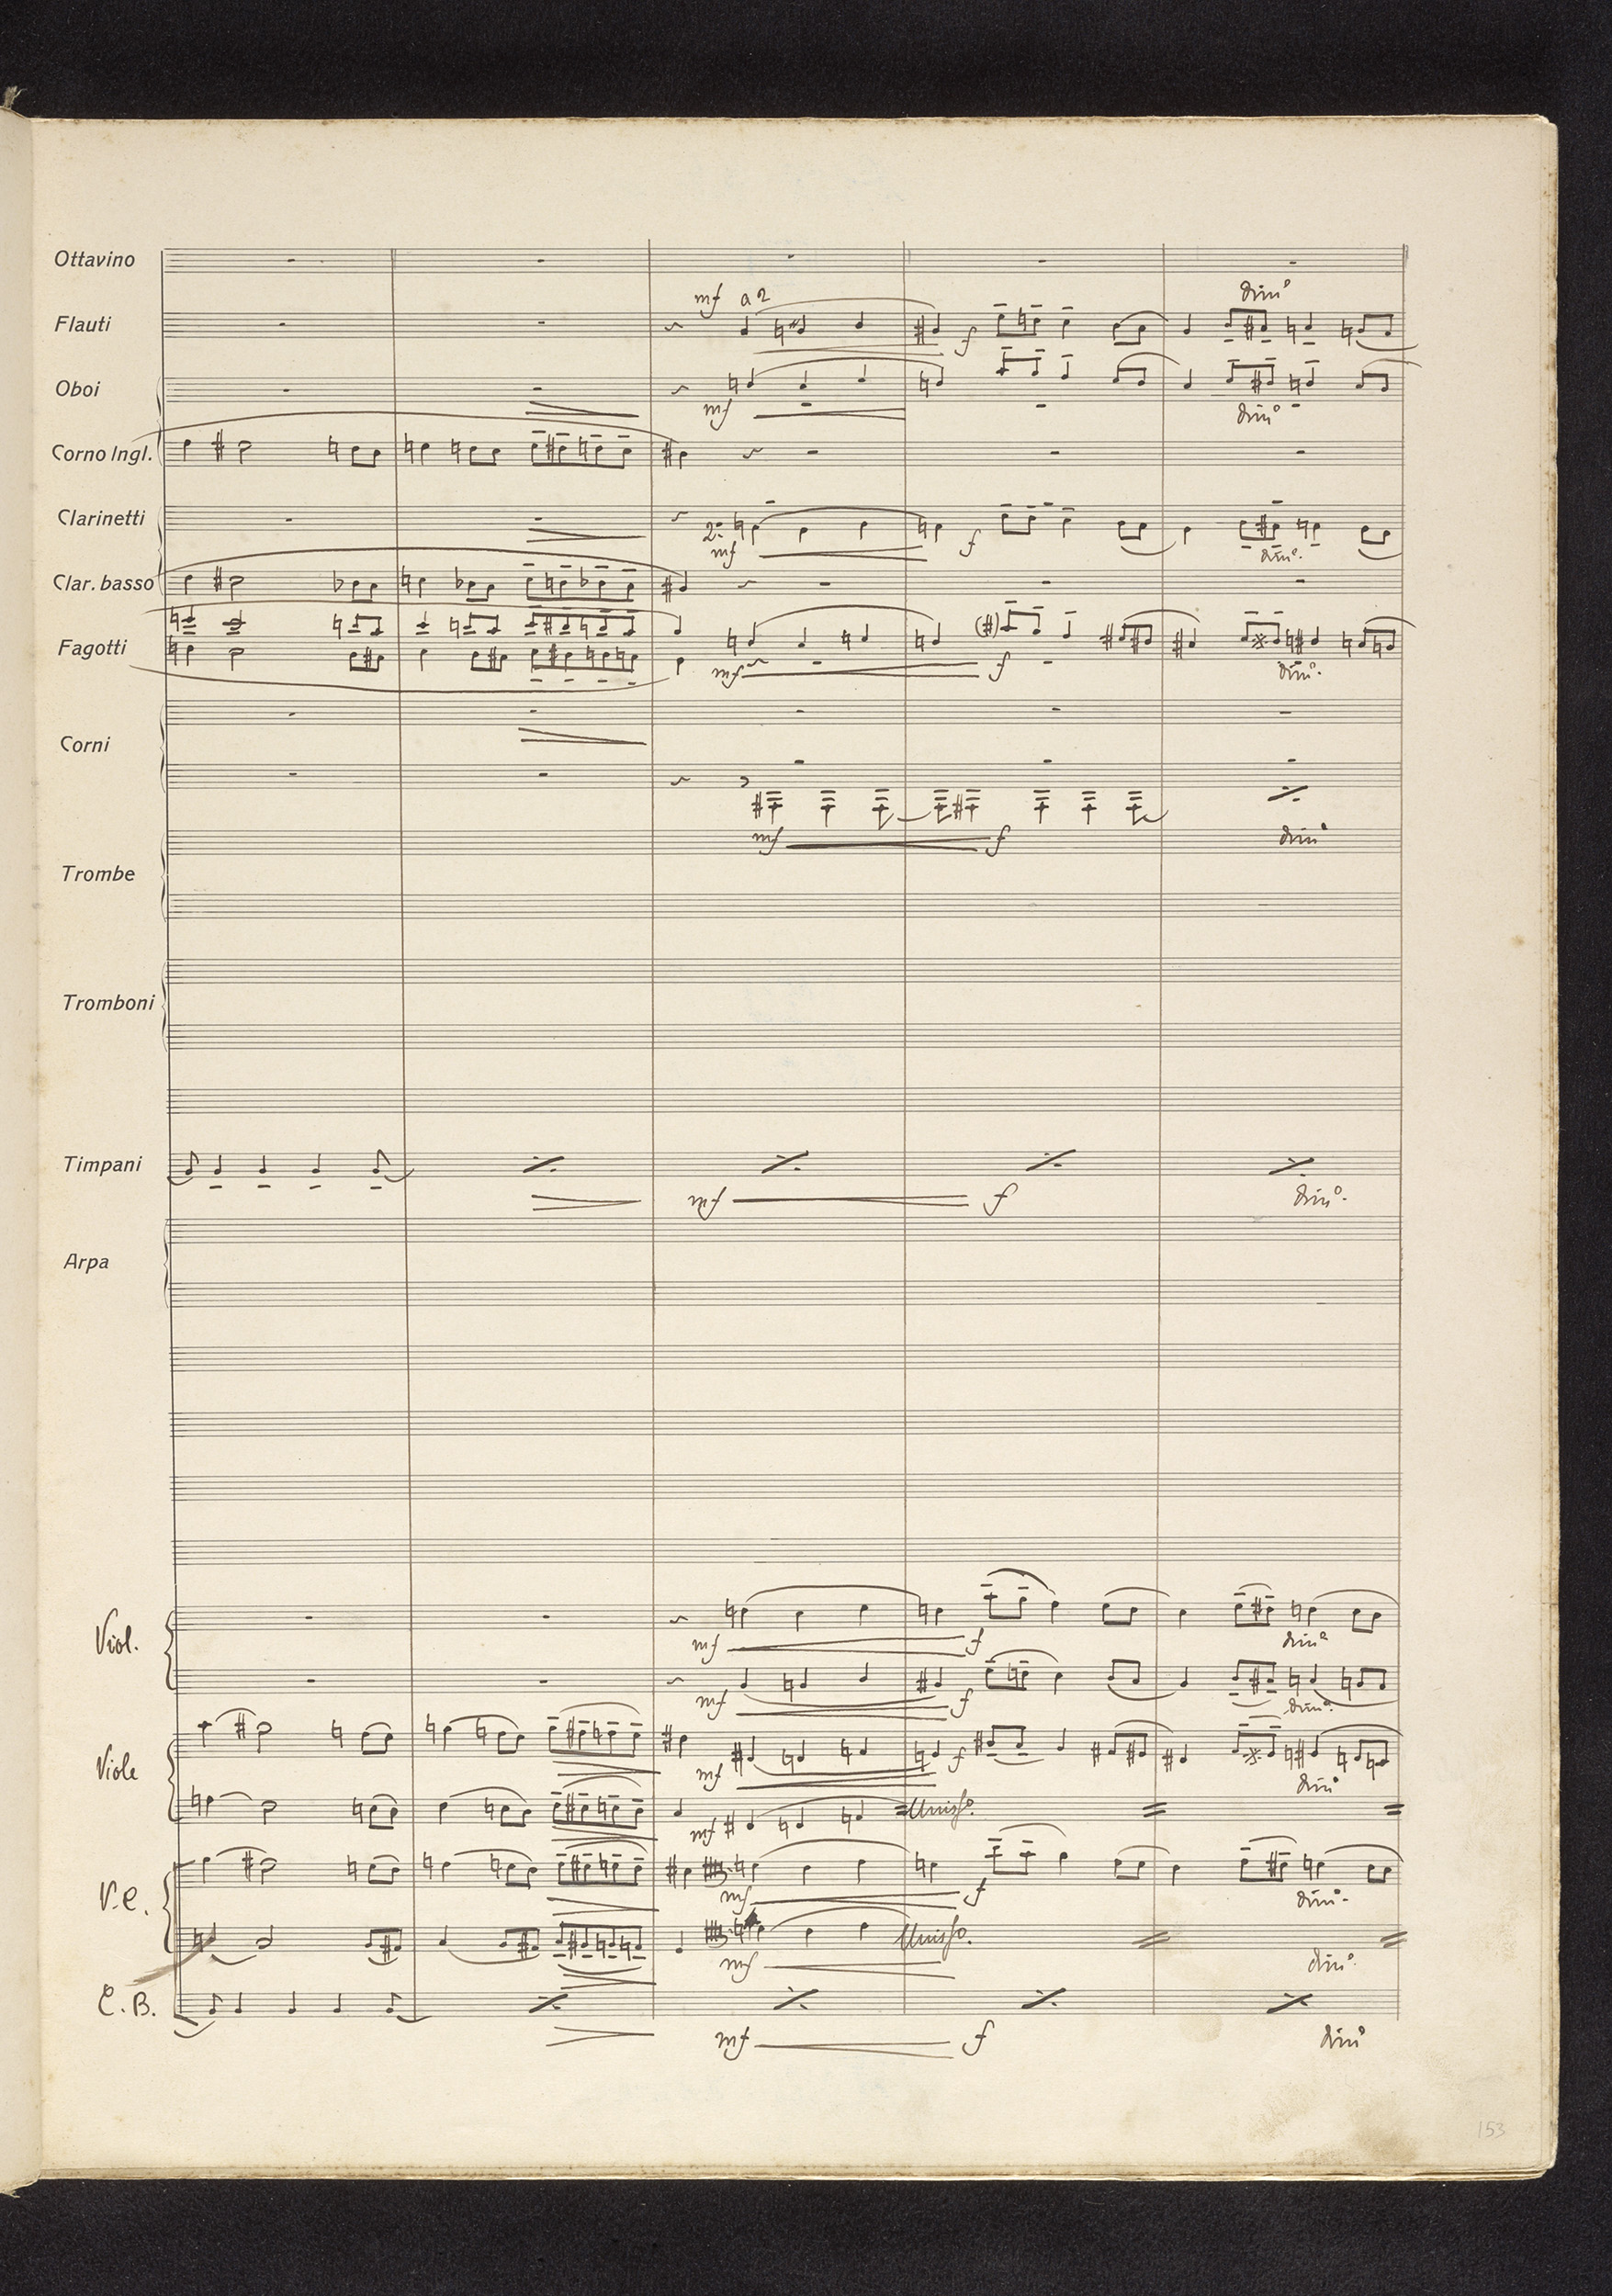 Ottavino
mf a 2 dim°
Flauti
f
Oboi
mf dim°
Corno Ingl.
Clarinetti
2: mf f dim°.
Clar. basso
Fagotti
mf f dim°.
Corni
mf f dim°
Trombe
Tromboni
Timpani
mf f dim°.
Arpa
Viol.
mf f dim°
mf f dim°.
Viole
mf f dim°
mf Uniso.
V.C.
mf f dim°.
Uniso.
mf dim°.
C.B.
mf f dim°
153